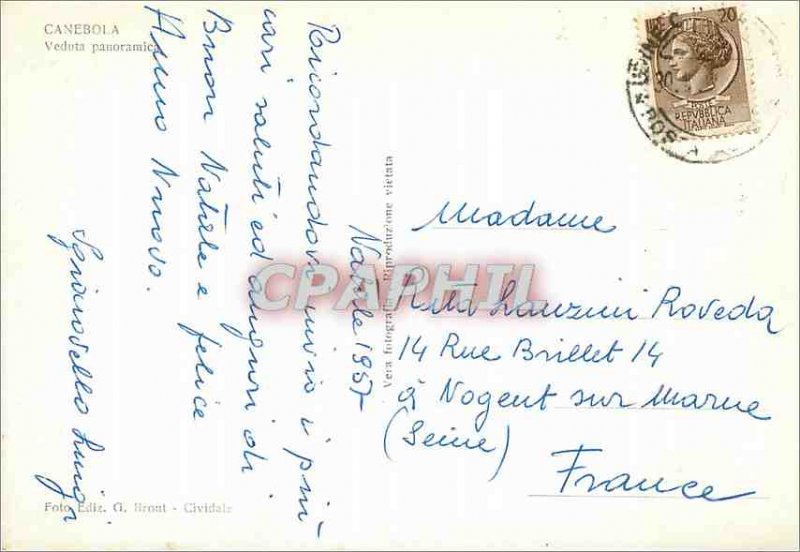 CANEBOLA
Veduta panoramica
Natale 1957
Ricordandovi invio i più
cari saluti ed auguri di
Buon Natale e felice
Anno Nuovo.
Luigi
Vera fotografia - Riproduzione vietata
Foto Ediz. G. Bront - Cividale
CPAPHIL
20
POSTE
REPVBBLICA
ITALIANA
Madame
Rita Lanzini Roveda
14 Rue Brillet 14
à Nogent sur Marne
(Seine)
France